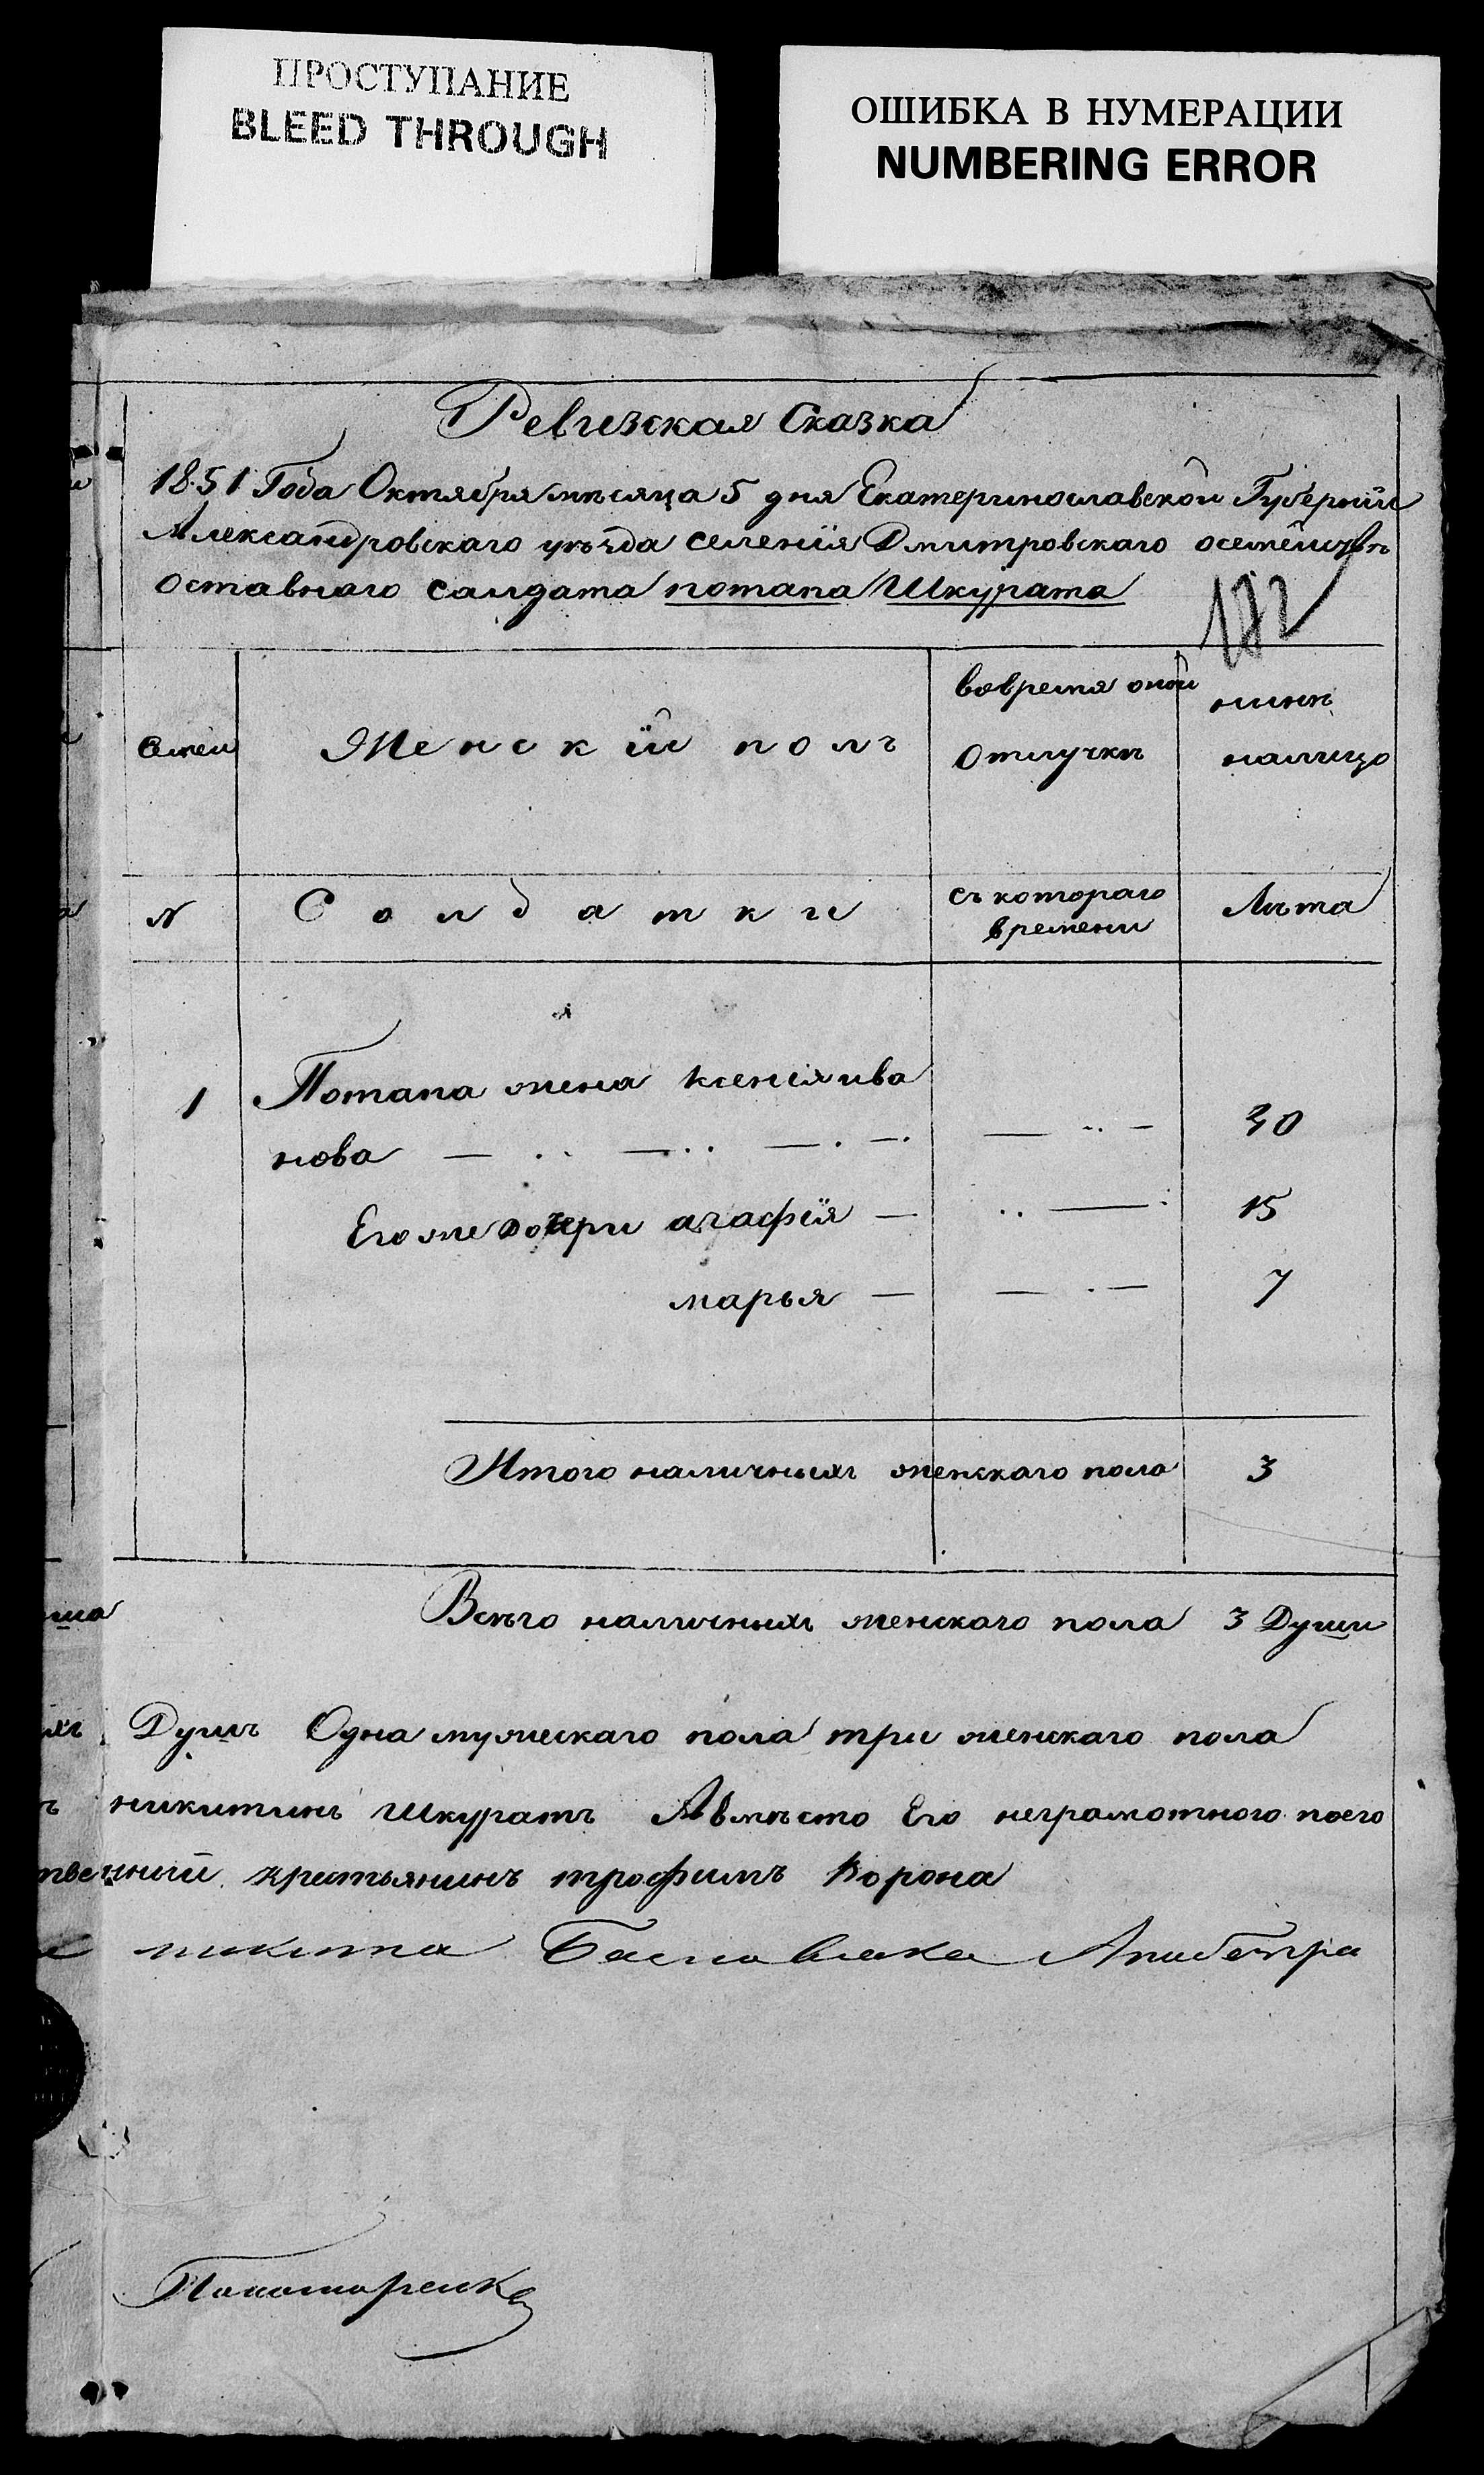 ПРОСТУПАНИЕ
BLEED THROUGH
ОШИБКА В НУМЕРАЦИИ
NUMBERING ERROR
Ревизская Сказка
1851 Года Октября мѣсяца 5 дня Екатеринославской Губернїи
Александровскаго уѣзда селенїя Дмитровскаго осемействѣ
оставнаго салдата потапа Шкурата
182
Семеи
Женскїй полъ
вовремя оной
отлучкѣ
нынѣ
налицо
N
Солдатки
съ котораго
времени
Лѣта
1
Потапа жена ксенїя ива
нова
30
Егоже дочери агафїя
15
марья
7
Итого наличныхъ женскаго пола 3
Всѣго наличныхъ женскаго пола 3 Души
Душъ Одна мужескаго пола три женскаго пола
никитинъ Шкуратъ Авмѣсто Его неграмотного поего
твенный крестьянинъ трофимъ Ворона
никита